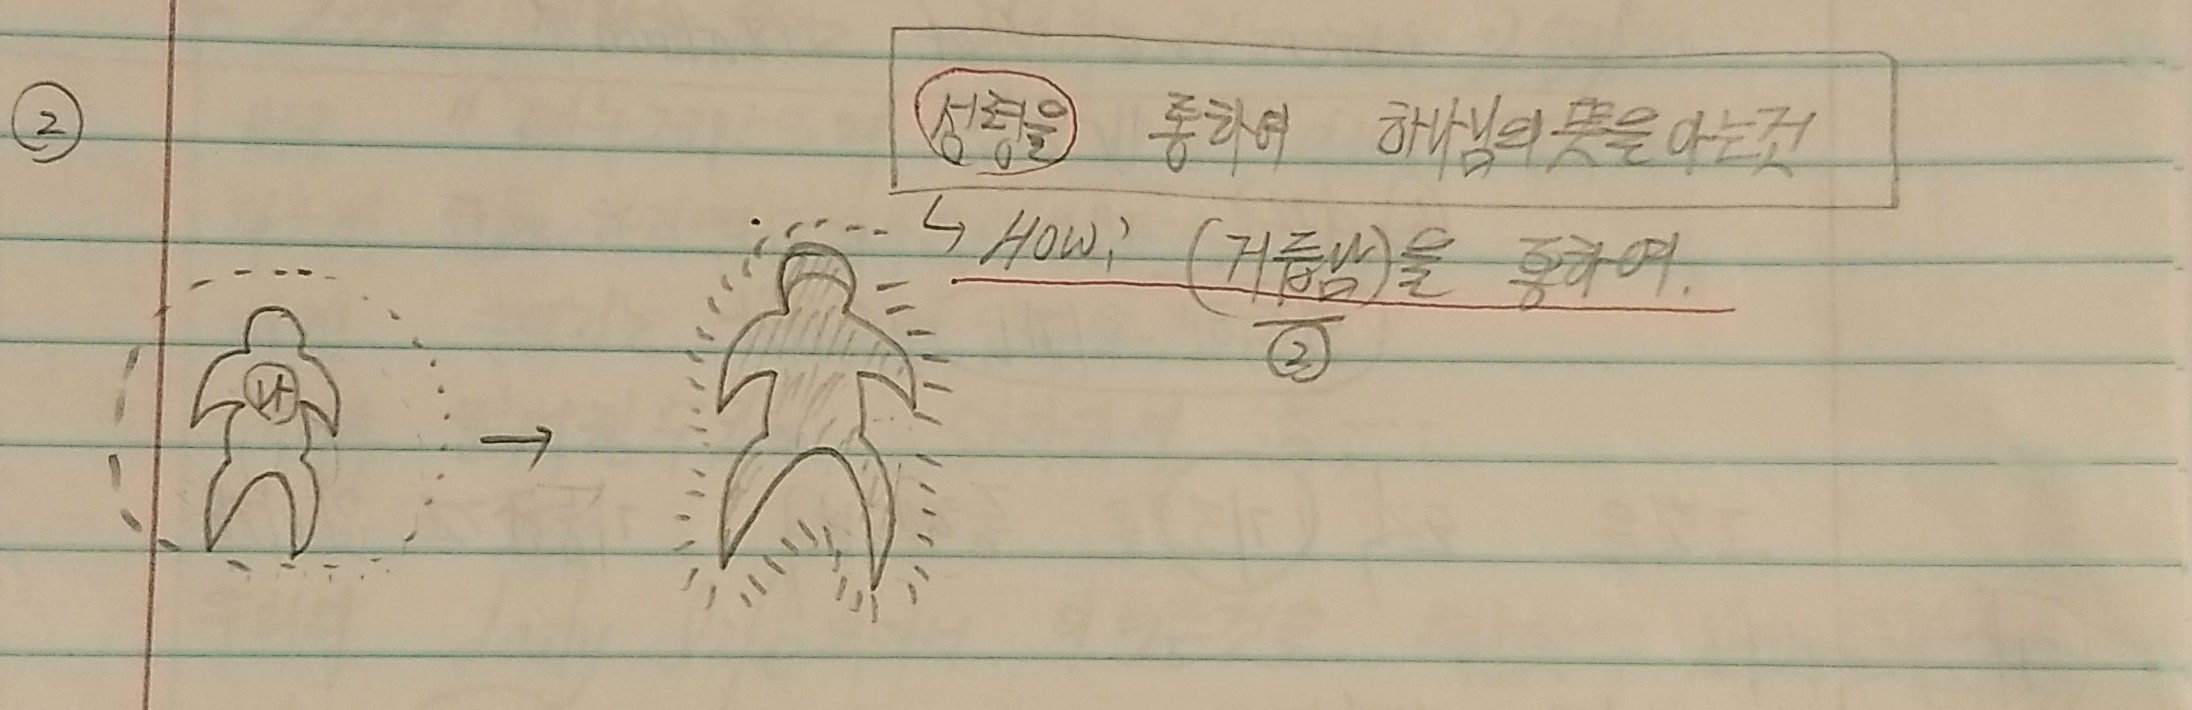 ②
성령을 통하여 하나님의 뜻을 아는것
↳ HOW; (거듭남)을 통하여.
②
나